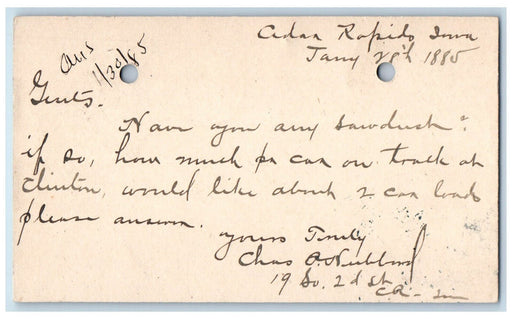 Cedar Rapids Iowa
Jany 28th 1885
Ans
1/30/85
Gents.
Have you any sawdust?
if so, how much pr car on track at
Clinton, would like about 2 car loads
please answer.
yours Truly
Chas A.
19 So. 2d St